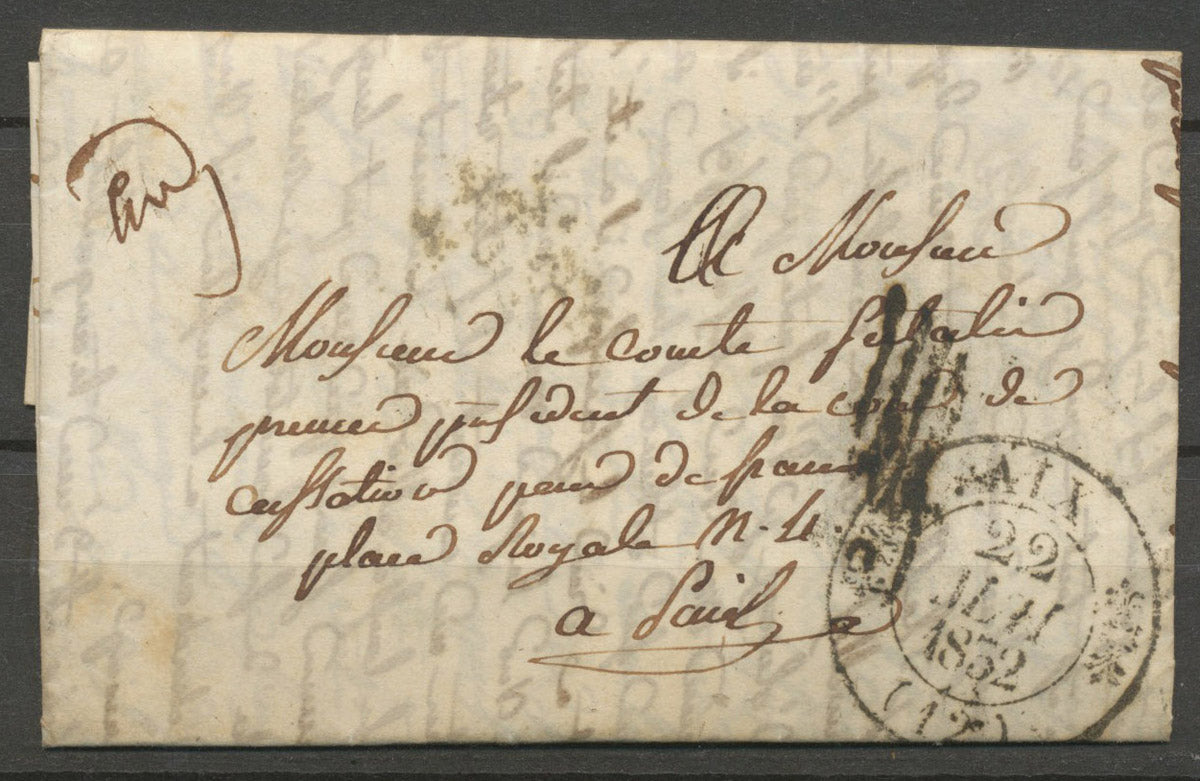 A Monsieur
Monsieur le comte
premier president de la cour de
cassation pair de france
place Royale N. 4.
a Paris
AIX
22
1832
(12)